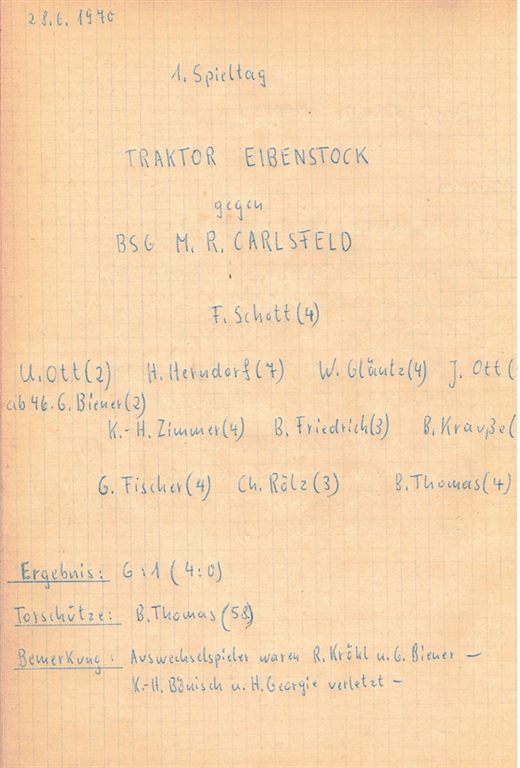 28.6.1970
1. Spieltag
TRAKTOR EIBENSTOCK
gegen
BSG M. R. CARLSFELD
F. Schott (4)
U. Ott (2) H. Herndorf (7) W. Gläntz (4) J. Ott (
ab 46. G. Biener (2)
K.-H. Zimmer (4) B. Friedrich (3) B. Krauße (
G. Fischer (4) Ch. Rölz (3) B. Thomas (4)
Ergebnis: 6:1 (4:0)
Torschütze: B. Thomas (58)
Bemerkung: Auswechselspieler waren R. Kröhl u. G. Biener —
K.-H. Bönisch u. H. Georgie verletzt —